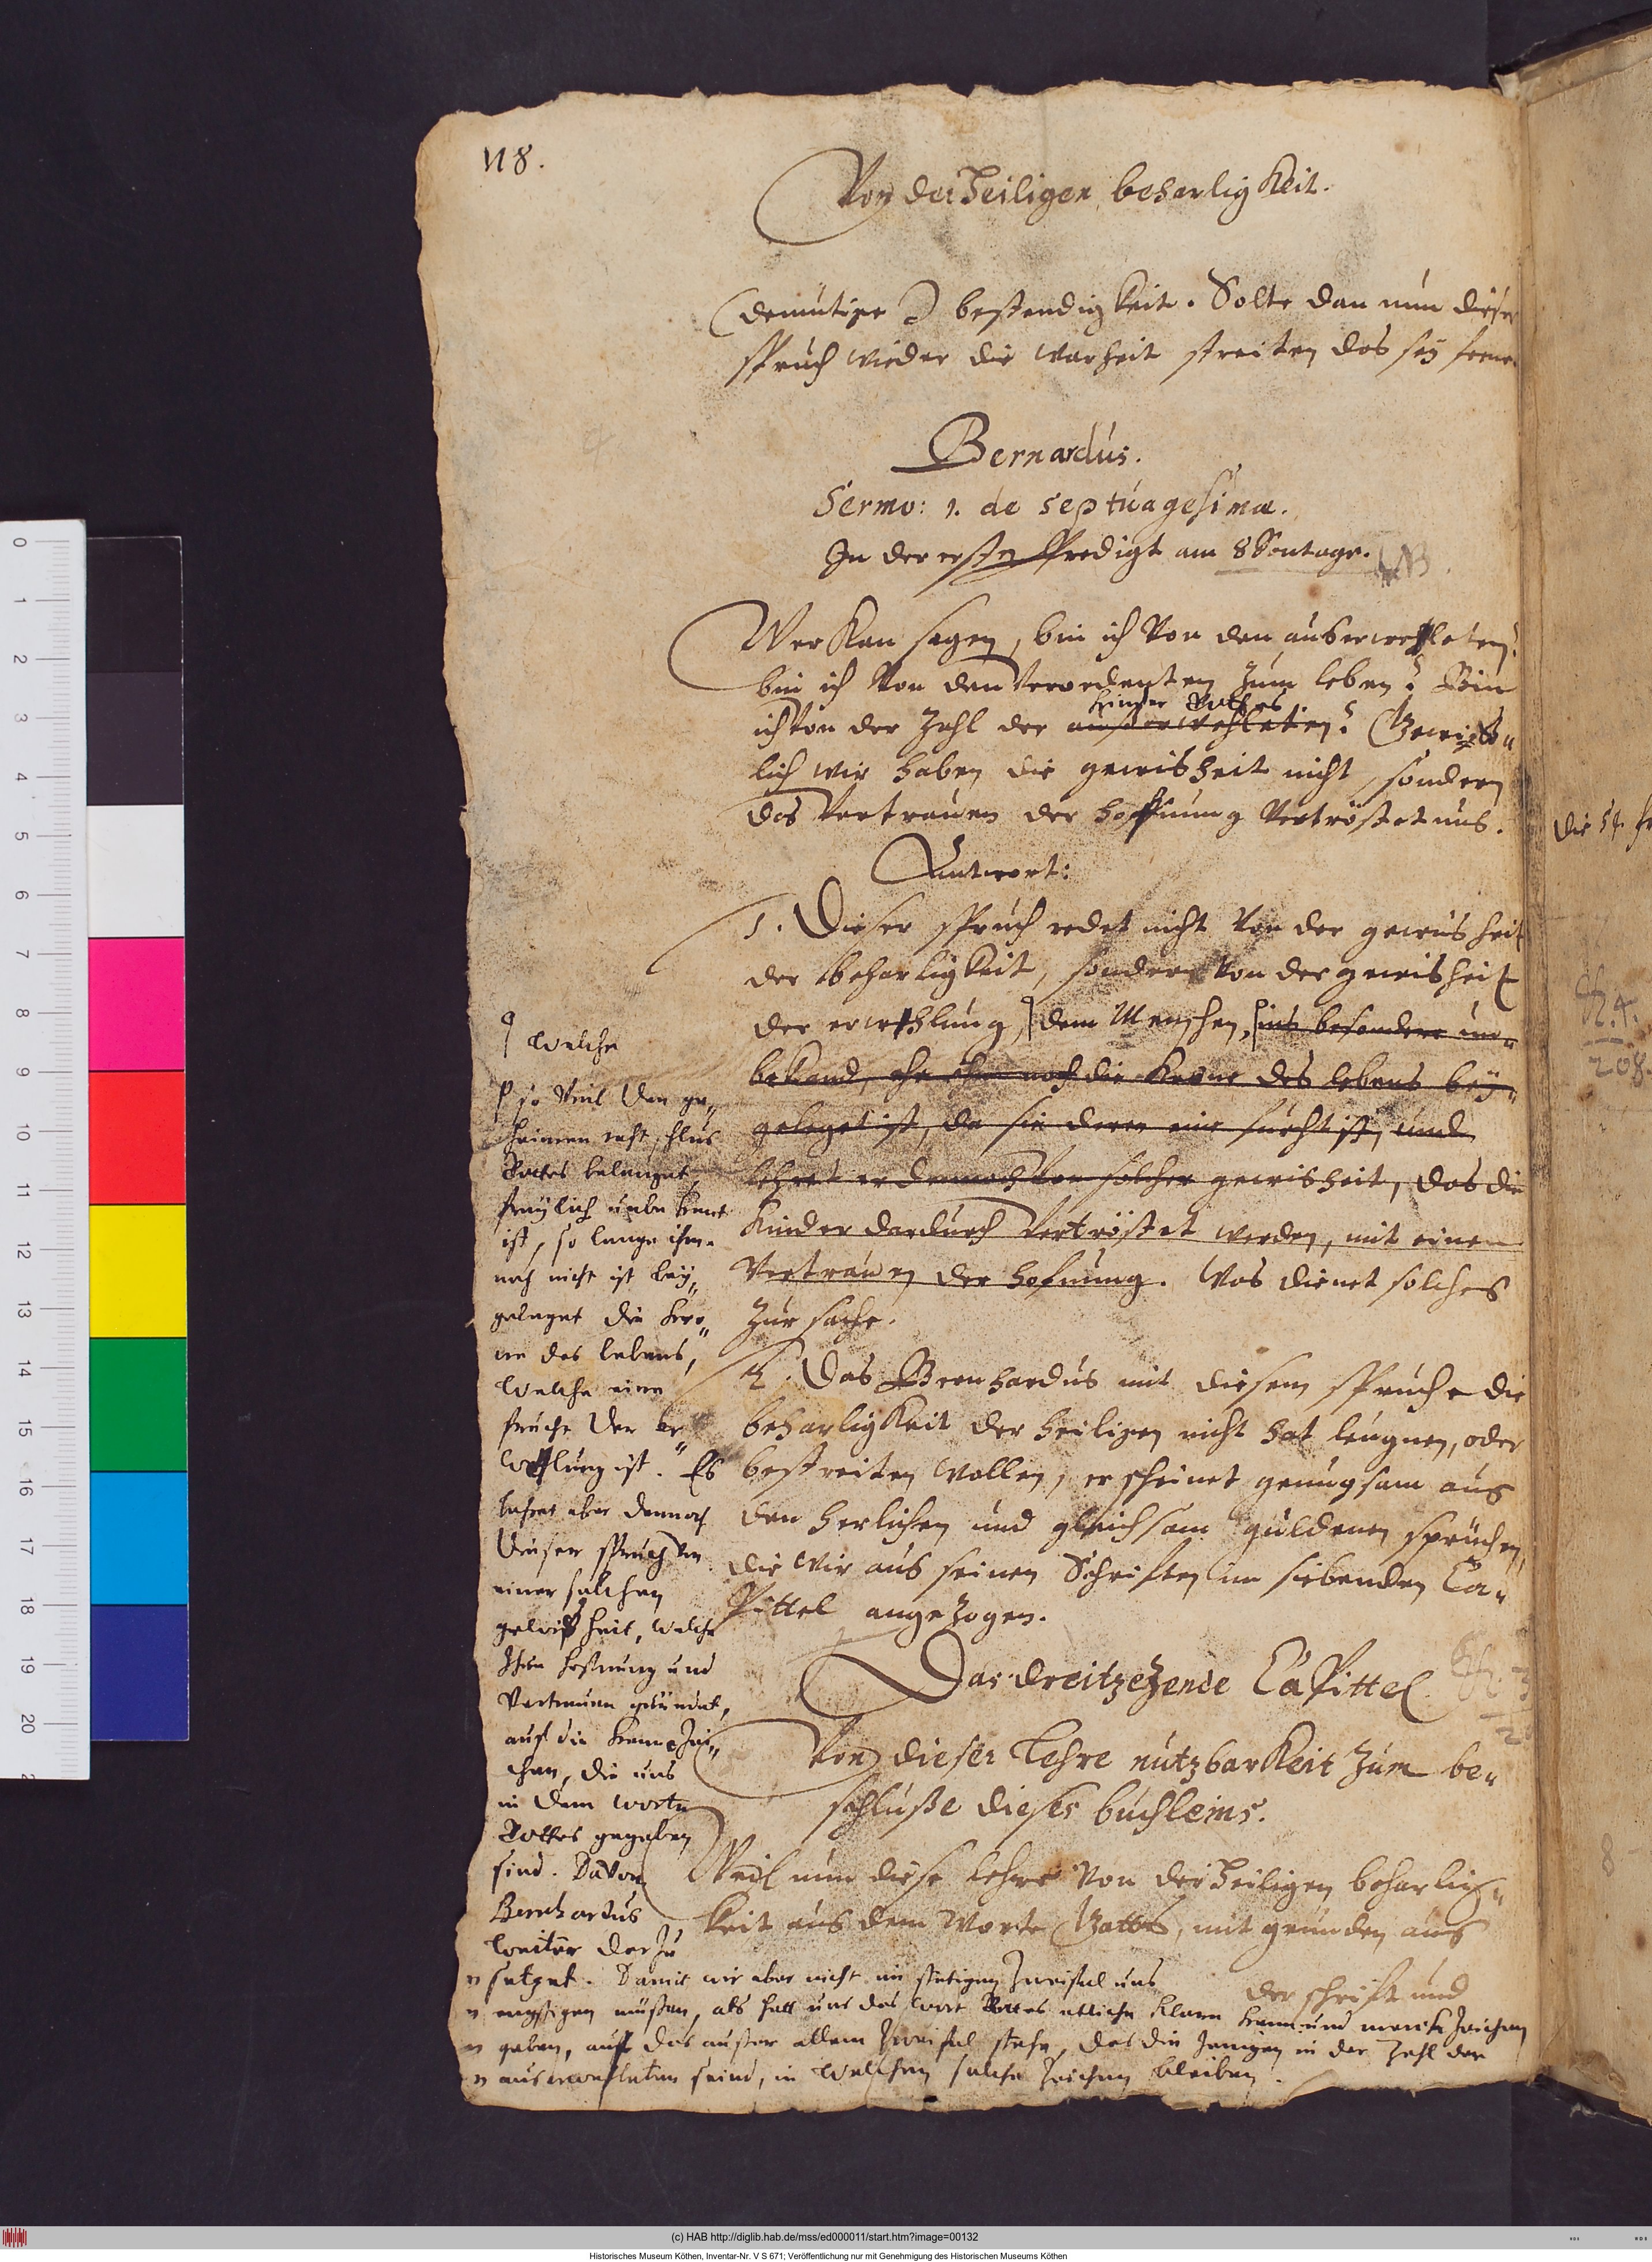 118.
Von der Heiligen beharligkeit.
(demütige) bestendigkeit. Solte dan nun dieser
spruch wieder die warheit streiten das sey ferne.
Bernardus.
Sermo: 1. de septuagesima.
In der ersten Predigt am 8 Sontage. NB.
Wer kan sagen, bin ich von den auserwehleten?
bin ich von den verordenten zum leben? Bin
kinder Gottes
ich von der Zahl der außerwehleten? Gewis„
lich wir haben die gewisheit nicht, sondern
das vertrauen der hoffnung vertröstet uns.
Antwort:
1. Dieser spruch redet nicht von der gewisheit
der beharligkeit, sondern von der gewisheit
der erwehlung, dem Menschen, ins besonder un„
bekand, ehe ihm noch die krone des lebens bey„
geleget ist, da sie deren eine frucht ist, und
lehret er dennoch von solcher gewisheit, das die
kinder dardurch vertröstet werden, mit einem
vertrauen der hofnung. Was dienet solches
zur sache.
2. Das Bernhardus mit diesem spruche die
beharligkeit der heiligen nicht hat leugnen, oder
bestreiten wollen, erscheinet genungsam aus
den herlichen und gleichsam guldenen sprüchen,
die wir aus seinen Schriften im siebenden Ca„
pittel angezogen.
Das dreitzehende Capittel
Von dieser Lehre nutzbarkeit zum be„
schluße dieses büchleins.
Weil nun diese lehre von der Heiligen beharlig„
keit aus dem Worte Gottes, mit gründen aus
der schrift und
welche
so viel den ge„
heimen rahtschlus
Gottes belanget,
freylich unbekant
ist, so lange ihm
noch nicht ist bey„
geleget die kro„
ne des lebens,
welche eine
frucht der er„
wehlung ist. Es
lehret aber dennoch
dieser spruch von
einer solchen
gewißheit, welche
ihre hofnung und
vertrauen gründet,
auf die kennzei„
chen, die uns
in dem worte
Gottes gegeben
sind. Davon
Bernhardus
weiter darzu
„ setzet. Damit wir aber nicht im stetigen Zweifel uns
„ engstigen müßen, als hatt uns das wort Gottes etliche klare kenn und merckzeichen
„ geben, auf das außer allem Zweifel stehe, das die jenigen in der Zahl der
„ auserwehleten seind, in welchen solche zeichen bleiben.
208.
(c) HAB http://diglib.hab.de/mss/ed000011/start.htm?image=00132
Historisches Museum Köthen, Inventar-Nr. V S 671; Veröffentlichung nur mit Genehmigung des Historischen Museums Köthen